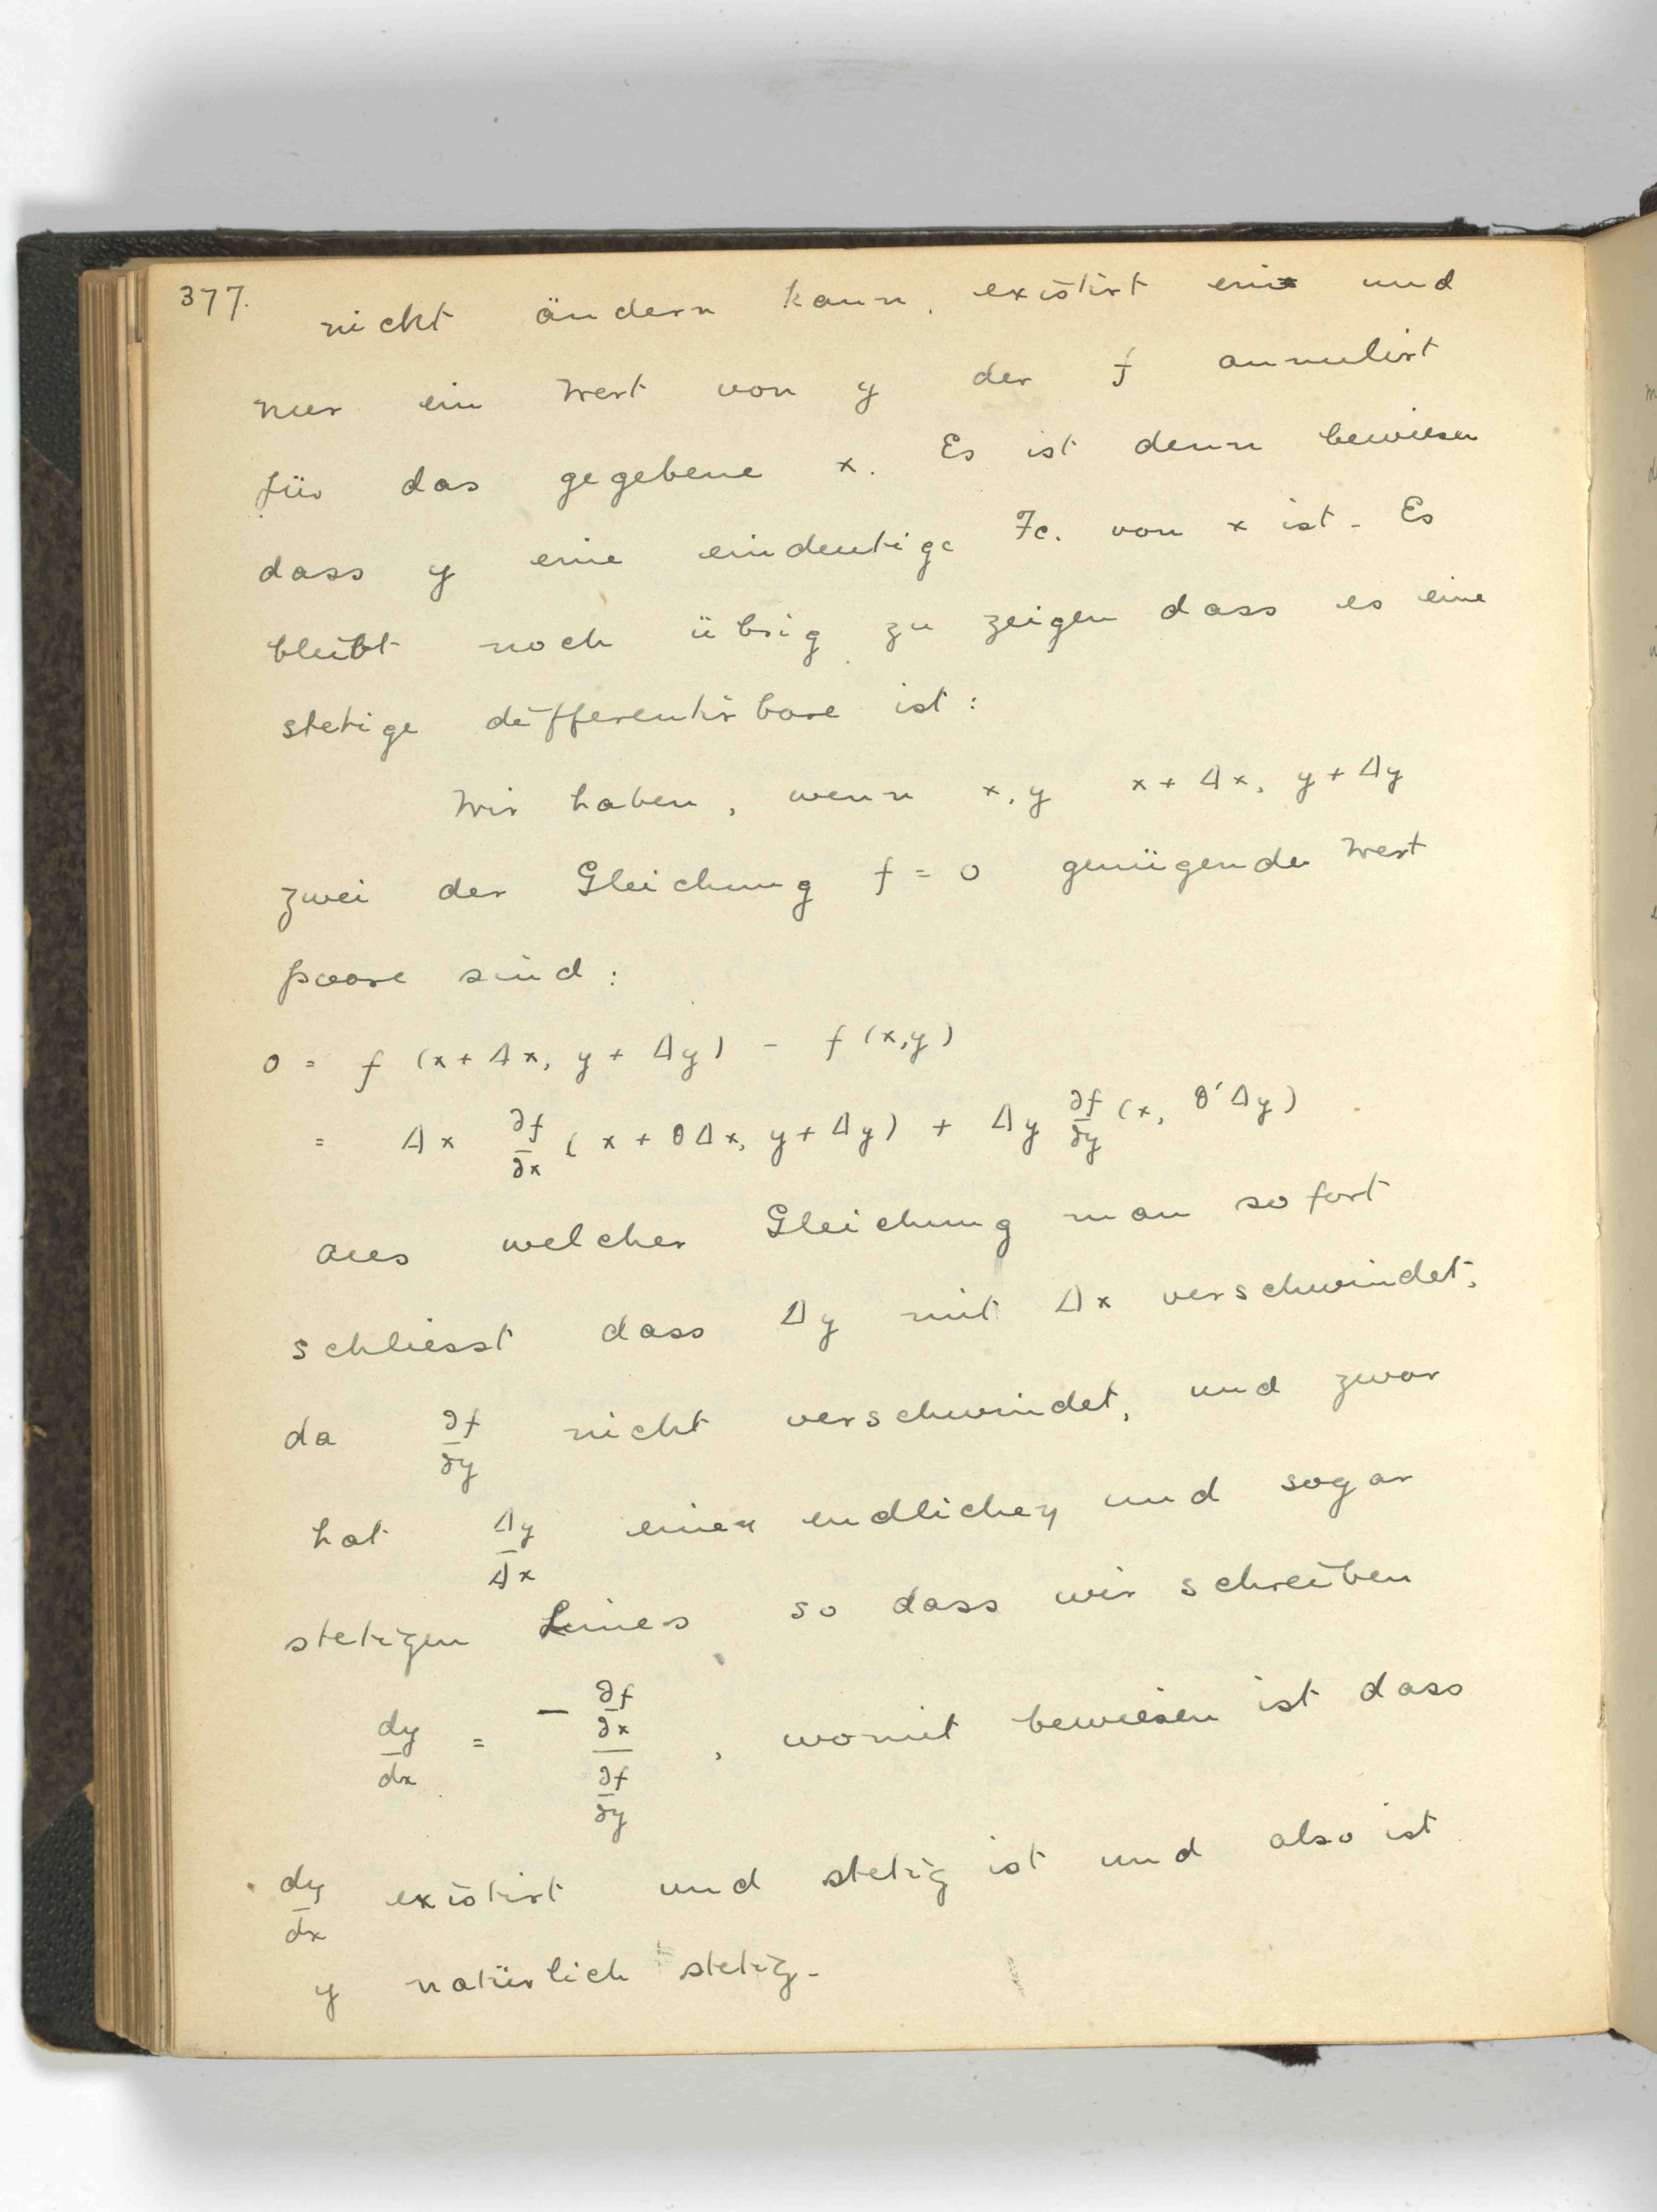 377.
nicht ändern kann, existirt ein und
nur ein Wert von y der f annulirt
für das gegebene x. Es ist denn bewiesen
dass y eine eindeutige Fc. von x ist. Es
bleibt noch übrig zu zeigen dass es eine
stetige differentirbare ist:
Wir haben, wenn x, y x + Δx, y + Δy
zwei der Gleichung f = 0 genügende Wert
paare sind:
0 = f (x + Δx, y + Δy) - f (x, y)
= Δx ∂f/∂x (x + θΔx, y + Δy) + Δy ∂f/∂y (x, θ'Δy)
aus welcher Gleichung man sofort
schliesst dass Δy mit Δx verschwindet,
da ∂f/∂y nicht verschwindet, und zwar
hat Δy/Δx einen endlichen und sogar
stetigen Limes so dass wir schreiben
dy/dx = - ∂f/∂x / ∂f/∂y , womit bewiesen ist dass
dy/dx existirt und stetig ist und also ist
y natürlich stetig.